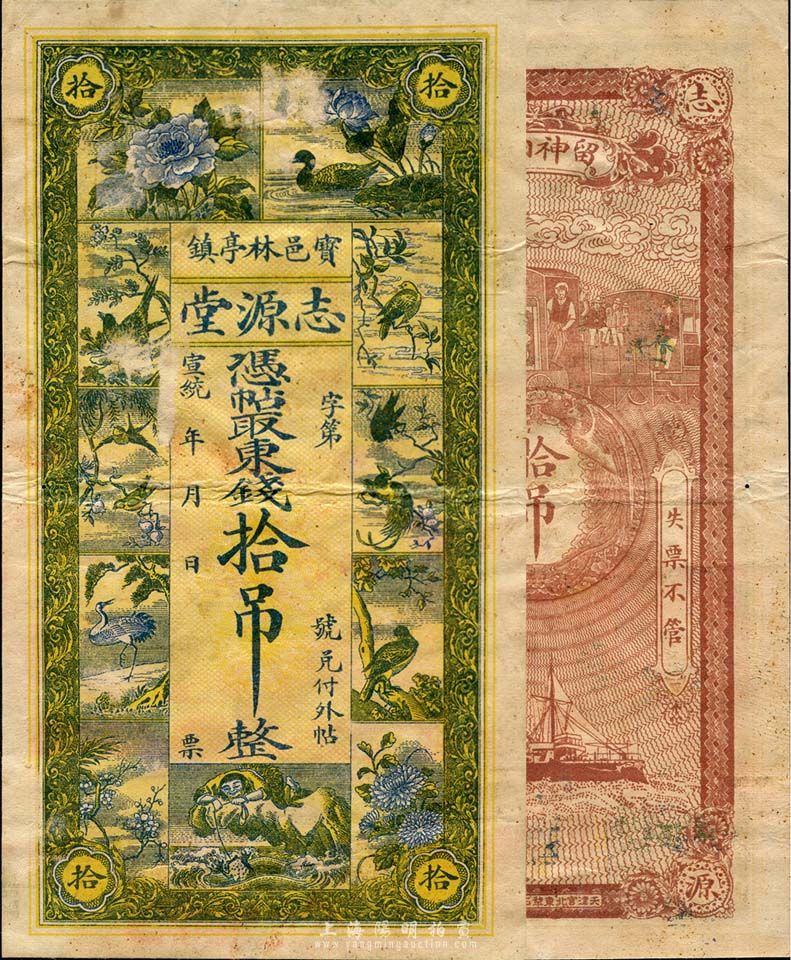 拾
拾
寳邑林亭鎮
志源堂
字第
號兑付外帖
憑帖㝡東錢拾吊整
宣統年月日
票
拾
拾
志
留神
拾吊
失票不管
源
天津宮北東
上海陽明拍賣
www.yangmingauction.com